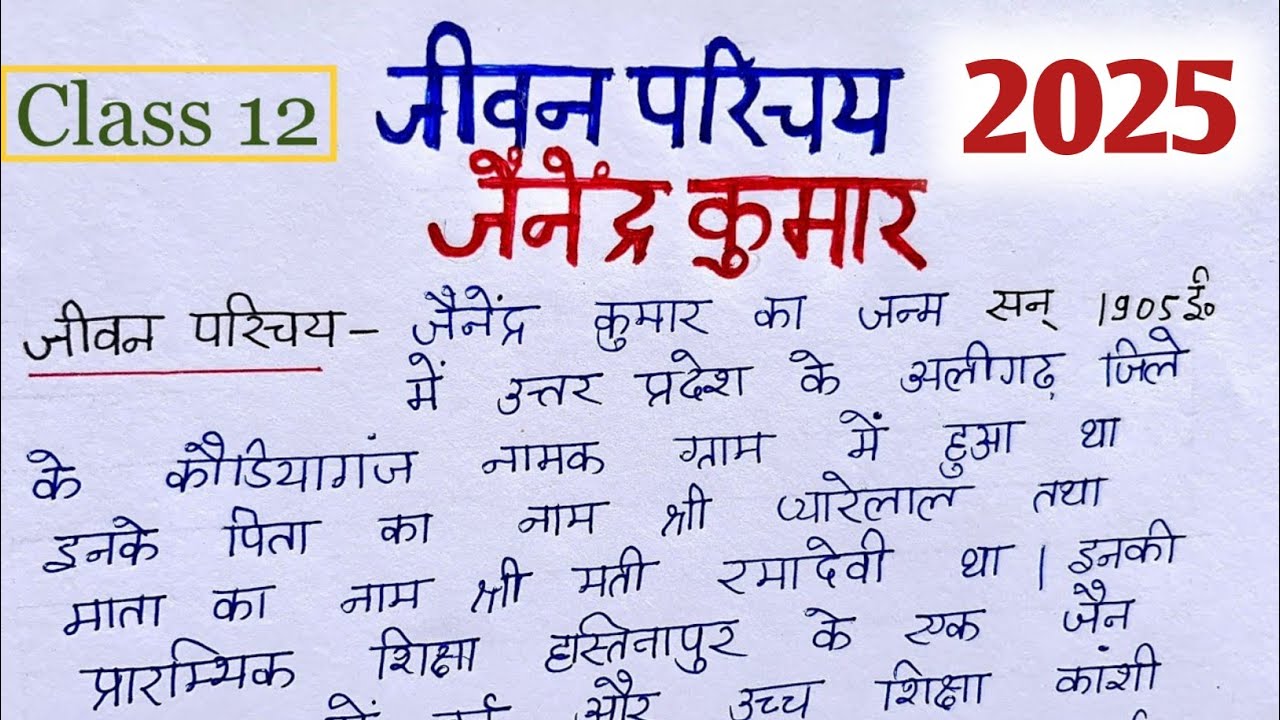 Class 12
जीवन परिचय
2025
जैनेंद्र कुमार
जीवन परिचय – जैनेंद्र कुमार का जन्म सन् 1905 ई०
में उत्तर प्रदेश के अलीगढ़ जिले
के कौडियागंज नामक ग्राम में हुआ था
इनके पिता का नाम श्री प्यारेलाल तथा
माता का नाम श्री मती रमादेवी था | इनकी
प्रारम्भिक शिक्षा हस्तिनापुर के एक जैन
में और उच्च शिक्षा कांशी